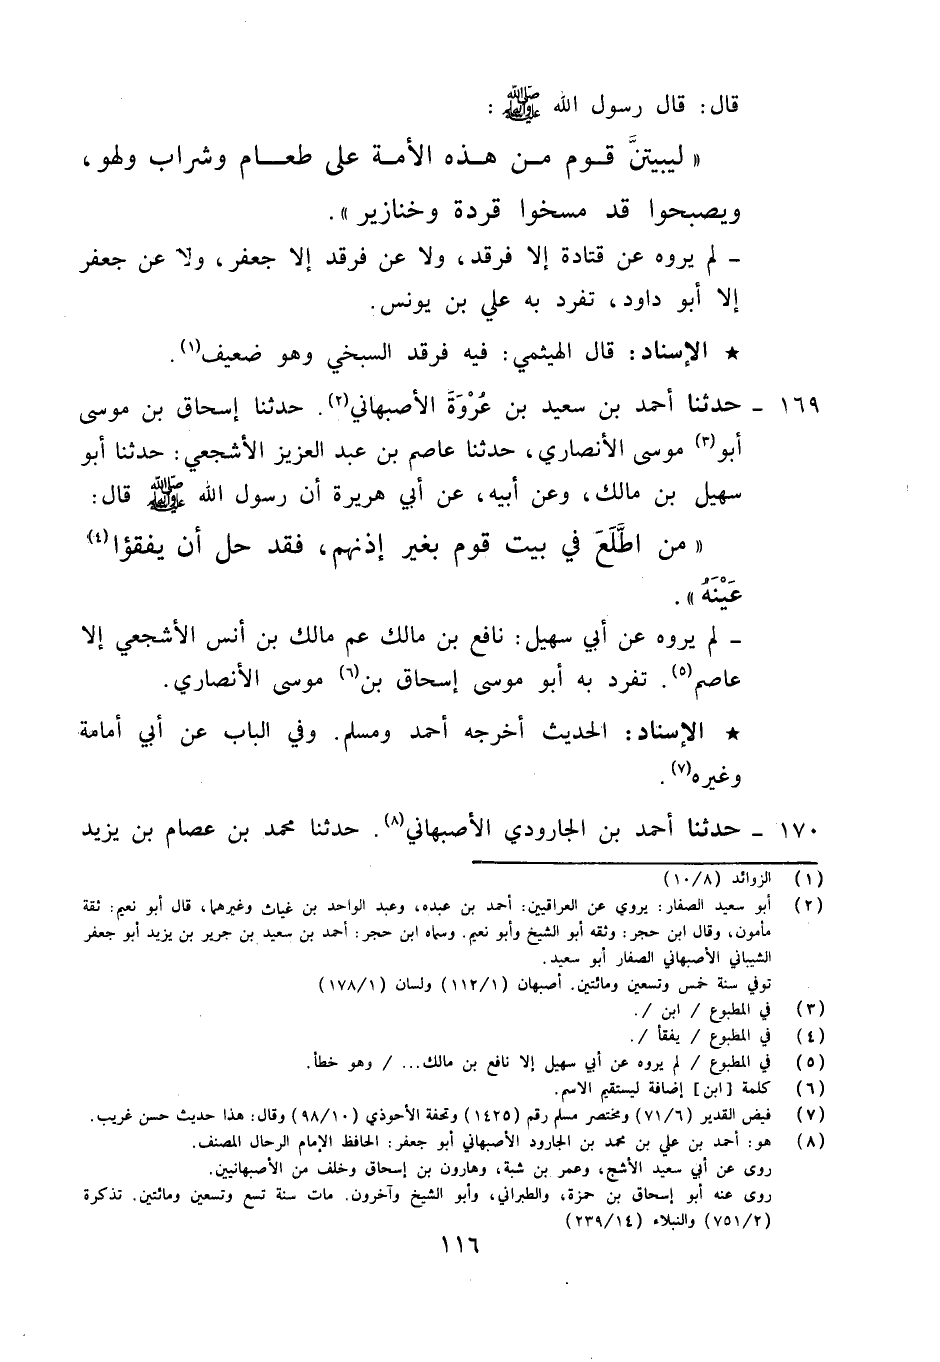 قال: قال رسول الله ﷺ :
« ليبيتنَّ قوم من هذه الأمة على طعام وشراب ولهو،
ويصبحوا قد مسخوا قردة وخنازير ».
ـ لم يروه عن قتادة إلا فرقد، ولا عن فرقد إلا جعفر، ولا عن جعفر
إلا أبو داود، تفرد به علي بن يونس.
★ الإسناد: قال الهيثمي: فيه فرقد السبخي وهو ضعيف(١).
١٦٩ ـ حدثنا أحمد بن سعيد بن عُرْوَةَ الأصبهاني(٢). حدثنا إسحاق بن موسى
أبو(٣) موسى الأنصاري، حدثنا عاصم بن عبد العزيز الأشجعي: حدثنا أبو
سهيل بن مالك، وعن أبيه، عن أبي هريرة أن رسول الله ﷺ قال:
« من اطَّلَعَ في بيت قوم بغير إذنهم، فقد حل أن يفقؤا(٤)
عَيْنَهُ ».
ـ لم يروه عن أبي سهيل: نافع بن مالك عم مالك بن أنس الأشجعي إلا
عاصم(٥). تفرد به أبو موسى إسحاق بن(٦) موسى الأنصاري.
★ الإسناد: الحديث أخرجه أحمد ومسلم. وفي الباب عن أبي أمامة
وغيره(٧).
١٧٠ ـ حدثنا أحمد بن الجارودي الأصبهاني(٨). حدثنا محمد بن عصام بن يزيد
(١) الزوائد (١٠/٨)
(٢) أبو سعيد الصفار: يروي عن العراقيين: أحمد بن عبده، وعبد الواحد بن غياث وغيرهما، قال أبو نعيم: ثقة
مأمون، وقال ابن حجر: وثقه أبو الشيخ وأبو نعيم. وسماه ابن حجر: أحمد بن سعيد بن جرير بن يزيد أبو جعفر
الشيباني الأصبهاني الصفار أبو سعيد.
توفي سنة خمس وتسعين ومائتين. أصبهان (١١٢/١) ولسان (١٧٨/١)
(٣) في المطبوع / ابن /.
(٤) في المطبوع / يفقأ /.
(٥) في المطبوع / لم يروه عن أبي سهيل إلا نافع بن مالك... / وهو خطأ.
(٦) كلمة [ابن] إضافة ليستقيم الاسم.
(٧) فيض القدير (٧١/٦) ومختصر مسلم رقم (١٤٢٥) وتحفة الأحوذي (٩٨/١٠) وقال: هذا حديث حسن غريب.
(٨) هو: أحمد بن علي بن محمد بن الجارود الأصبهاني أبو جعفر: الحافظ الإمام الرحال المصنف.
روى عن أبي سعيد الأشج، وعمر بن شبة، وهارون بن إسحاق وخلف من الأصبهانيين.
روى عنه أبو إسحاق بن حمزة، والطبراني، وأبو الشيخ وآخرون. مات سنة تسع وتسعين ومائتين. تذكرة
(٧٥١/٢) والنبلاء (٢٣٩/١٤)
١١٦